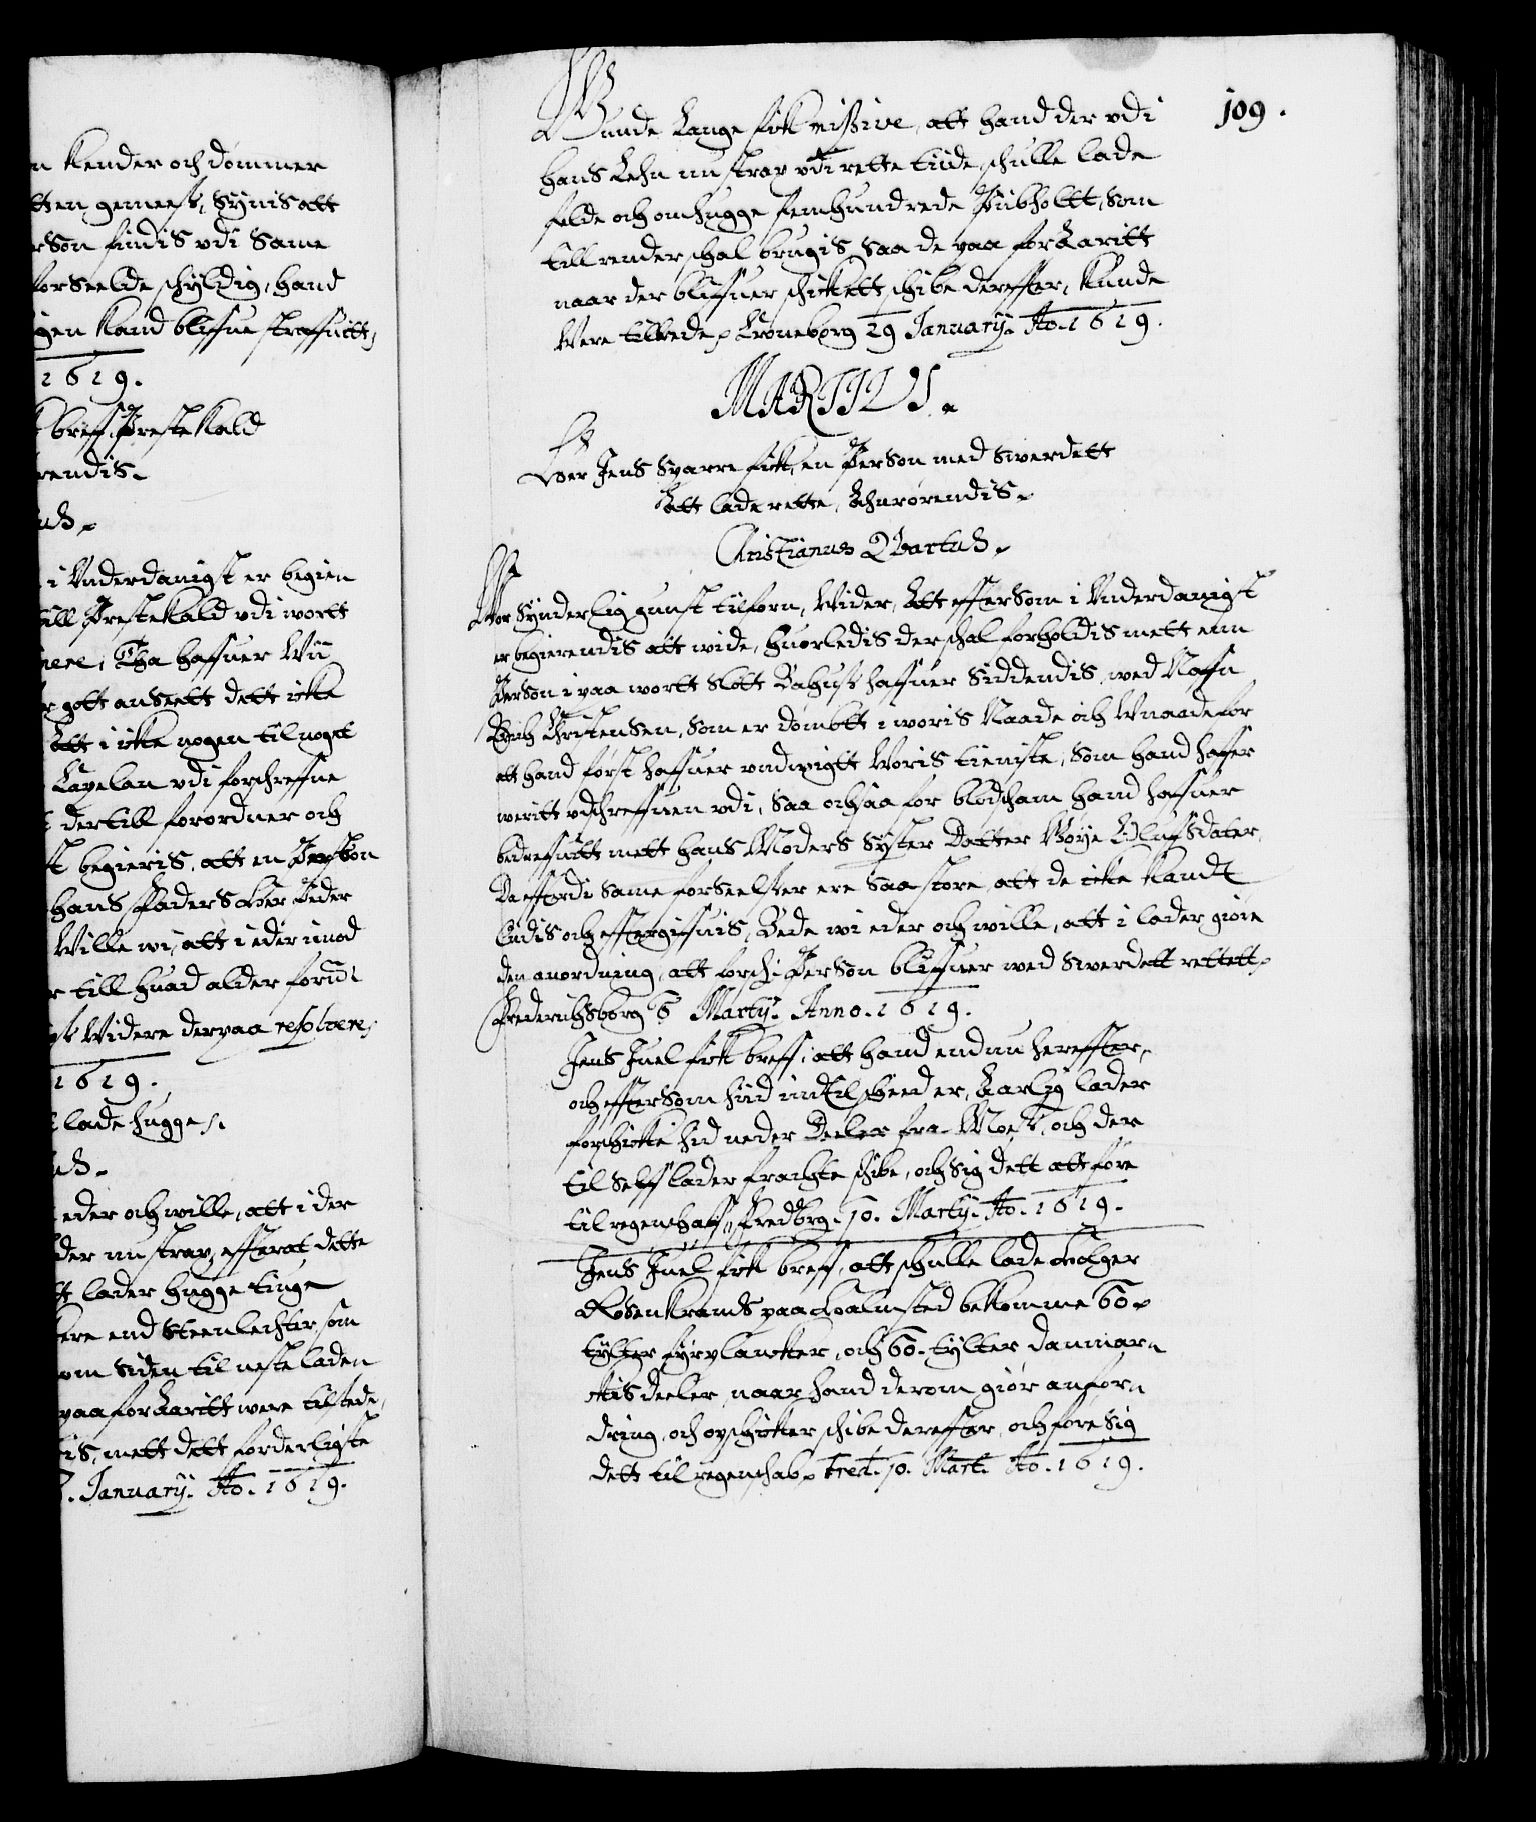 n kender och dømmer
tten gemeest, Synis att
rson findis vdi same
forseelde schyldig, hand
gen kand bliffue straffuitt,
1619.
breff Preste kald
rendis.
i Vnderdanigst er begien
till Preste kald vdi wortt
mere, Tha haffuer Wii
r gott anseett dett icke
Att i icke nogen til noget
Capelan vdi forschreffne
dertill forordner och
t begieris, att en Person
hans Faders Her Peder
Wille wi, att i eder imod
r till huad alder forudi
Widere derpaa resoluere,
1619.
lade hugge.
eder och wille, att i der
der nu strax efferat dette
tt lader hugge tiuge
ere end Steenlechter som
om siden til neste laden
paa foraaritt were tilstede,
is, mett dett forderligste
7. Januarij. Ao. 1619.
109.
Gunde Lange fick missive, att hand der vdi
hans Lehn nu strax vdi rette tiide, schulle lade
felde och omhugge femhundrede Piibholtt, som
till render schal brugis saa de paa foraaritt
naar der bliffuer schickett schibe dereffter, kunde
Were tillrede. Croneborg 29 Januarij. Ao. 1619.
MARTIUS.
Her Jens Sparre fick, en Person med Swerdett
Att lade rette, Lehnrørendis.
Christianus Quartus.
Vor Synderlig gunst tilforn, Wider, Att efftersom i Vnderdanigst
er begierendis att wide, huorledis der schal forholdis mett enn
Person i paa wortt Slott Bahuss haffuer Siddendis, wed Naffn
Christensen, som er dømbtt i woris Naade och Vnaade for
att hand først haffuer vndwigtt Woris tieniste, som hand haffer
weritt vdschreffuen vdi, saa ochsaa for blodscham hand haffuer
bedreffuitt mett hans Moders Syster Datter Oluffsdater,
Da efftterdi same forseelser ere saa store, att de icke kand
liidis och efftergiffuis, Bede wi eder och wille, att i lader giøre
den anordning, att forschr: Person bliffuer wed Swerdett rettett.
Frederichsborg 6 Martij. Anno. 1619.
Jens Juel fick breff, att hand endnu hereffter,
och efftersom hiid indtil scheed er, Aarlig lader
forschicke hid neder Deeler fra Moss, och der
til Selff lader fracte schibe, och Sig dett att føre
til regenschaff, Fredborg. 10. Martij. Ao. 1619.
Jens Juel fick breff, att schulle lade Holger
Rosenkrands paa Halmsted bekomme 60.
tylter fyrplancker, och 60. tylter danmar¬
ckis deeler, naar hand derom giør anfor¬
dring, och opschicker schibe dereffter, och føre Sig
dett til regenschab. Fred. 10. Mart. Ao. 1619.